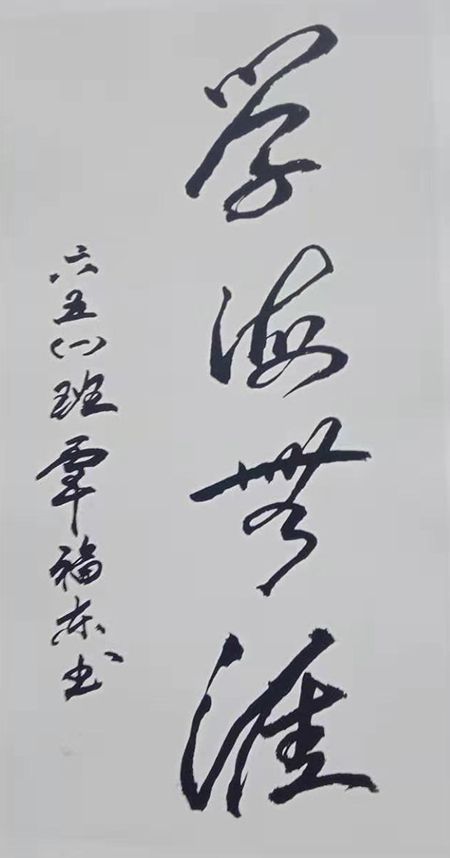 学海无涯
六五(一)班覃福东书